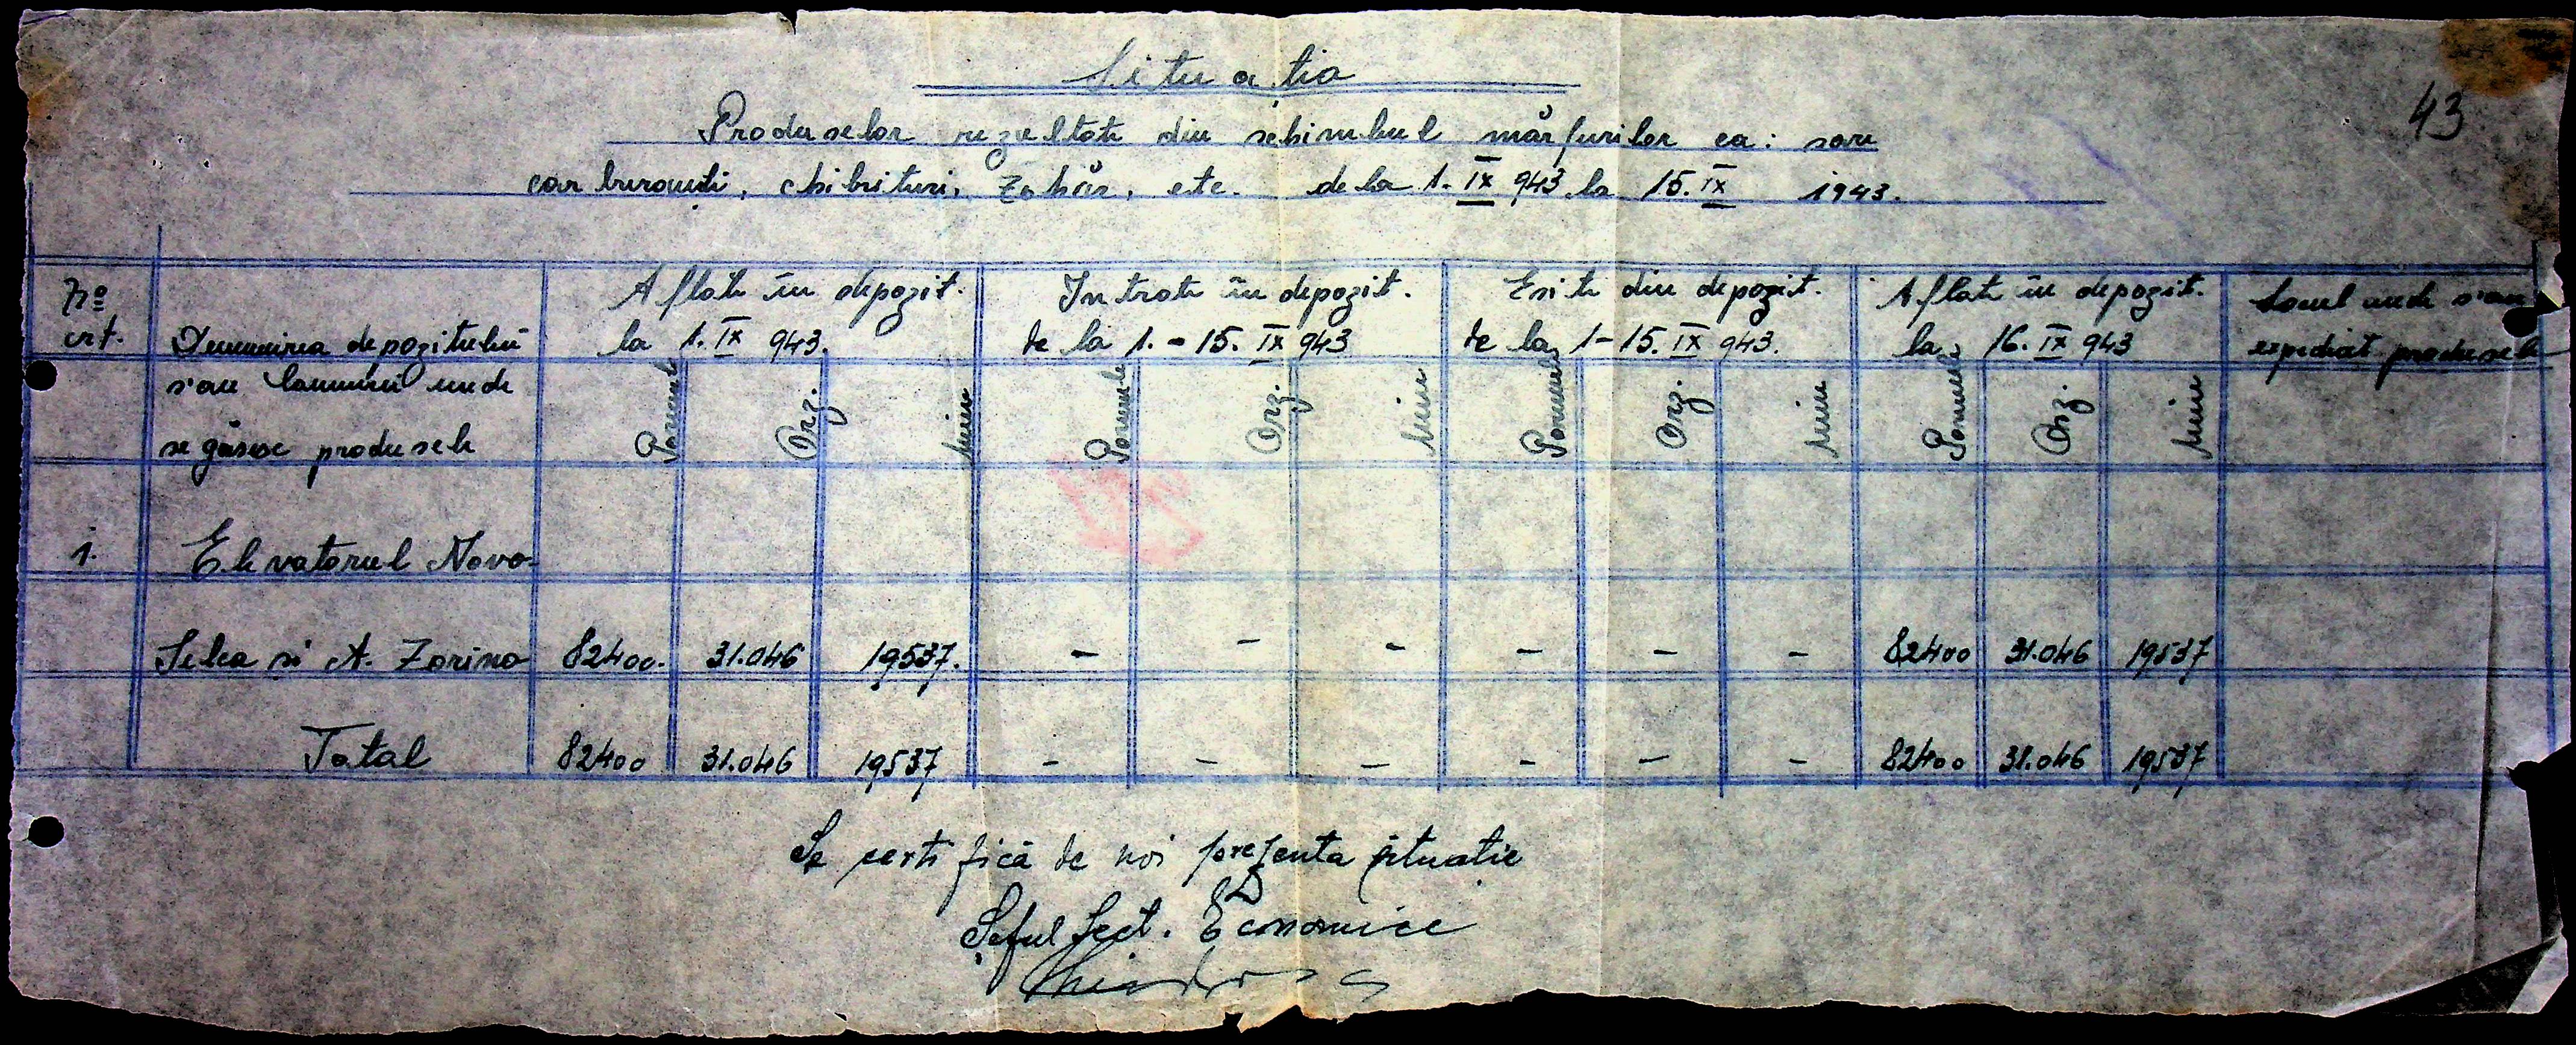 43
Situatia
Produselor rezultate din schimbul mărfurilor ca: sare
carburanti, chibrituri, Zahăr, etc. de la 1. IX 943 la 15. IX 1943.
No crt.
Denumirea depozitului
s'au lanului unde
se găsesc produsele
Aflate în depozit.
la 1. IX 943.
Intrate în depozit.
de la 1. - 15. IX 943
Esite din depozit.
de la 1-15. IX 943.
Aflate în depozit.
la 16. IX 943
Locul unde s'au
expediat produsele
Porumb Orz. Porumb Orz. Porumb Orz. Porumb Orz.
1. Elevatorul Novo-
Selca si A. Zorino 82400. 31.046 19537. - - - - - - 82400 31.046 19537
Total 82400 31.046 19537 - - - - - - 82400 31.046 19537
Se certifică de noi prezenta situatie
Șeful Sect. Economice